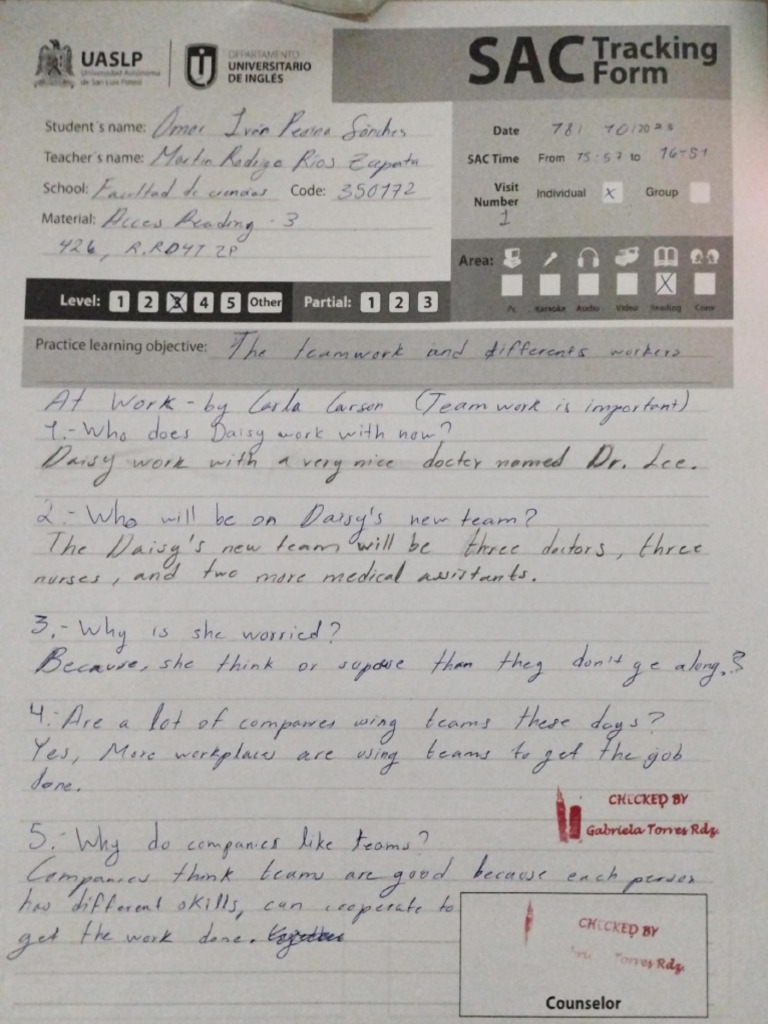 UASLP
Universidad Autónoma
de San Luis Potosí
DEPARTAMENTO
UNIVERSITARIO
DE INGLÉS
SAC Tracking
Form
Student's name: Omar Iván Sánches
Teacher's name: Martin Rodrigo Rios Zapata
School: Facultad de ciencias Code: 350172
Material: Acces Reading - 3
426, R.RD4T ZP
Date 18/ 10/20
SAC Time From 15:57 to 16-51
Visit
Number
1
Individual X Group
Area:
Pc Karaoke Audio Video Reading Conv
X
Level: 1 2 3 4 5 Other Partial: 1 2 3
Practice learning objective: The teamwork and differents workers
At Work - by Carla Carson (Team work is important)
1.- Who does Daisy work with now?
Daisy work with a very nice doctor named Dr. Lee.
2.- Who will be on Daisy's new team?
The Daisy's new team will be three doctors, three
nurses, and two more medical assistants.
3.- Why is she worried?
Because, she think or supose than they don't ge along.
4.- Are a lot of companies using teams these days?
Yes, More workplaces are using teams to get the gob
done.
CHECKED BY
Gabriela Torres Rdz.
5.- Why do companies like teams?
Companies think teams are good because each person
has different skills, can cooperate to
get the work done.
CHECKED BY
Torres Rdz.
Counselor